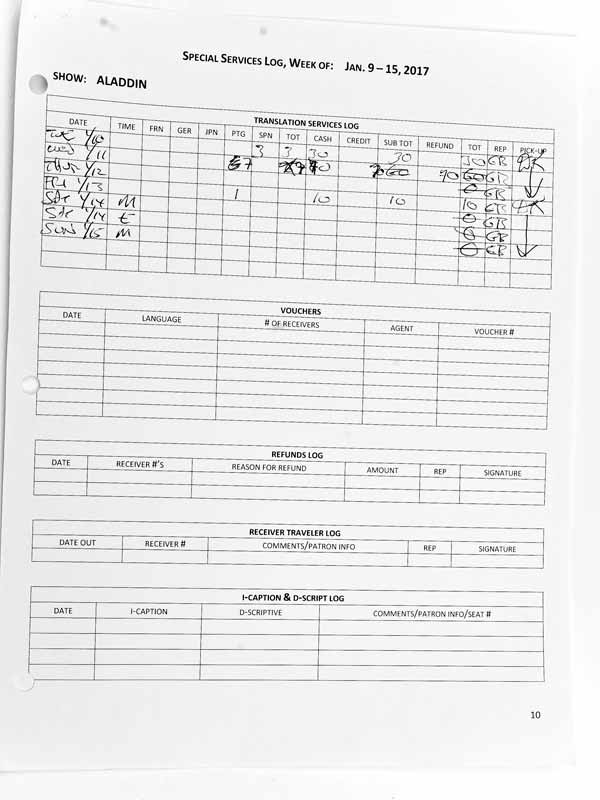 SPECIAL SERVICES LOG, WEEK OF: JAN. 9 – 15, 2017
SHOW: ALADDIN
TRANSLATION SERVICES LOG
DATE TIME FRN GER JPN PTG SPN TOT CASH CREDIT SUB TOT REFUND TOT REP PICK-UP
TUE 1/10
WED 1/11 3 3 30 30 30 GB
THUR 1/12 7 60 60 GB
FRI 1/13 0 GB
SAT 1/14 M 1 10 10 10 GB
SAT 1/14 E 0 GB
SUN 1/15 M 0 GB
0 GB
VOUCHERS
DATE LANGUAGE # OF RECEIVERS AGENT VOUCHER #
REFUNDS LOG
DATE RECEIVER #'S REASON FOR REFUND AMOUNT REP SIGNATURE
RECEIVER TRAVELER LOG
DATE OUT RECEIVER # COMMENTS/PATRON INFO REP SIGNATURE
I-CAPTION & D-SCRIPT LOG
DATE I-CAPTION D-SCRIPTIVE COMMENTS/PATRON INFO/SEAT #
10